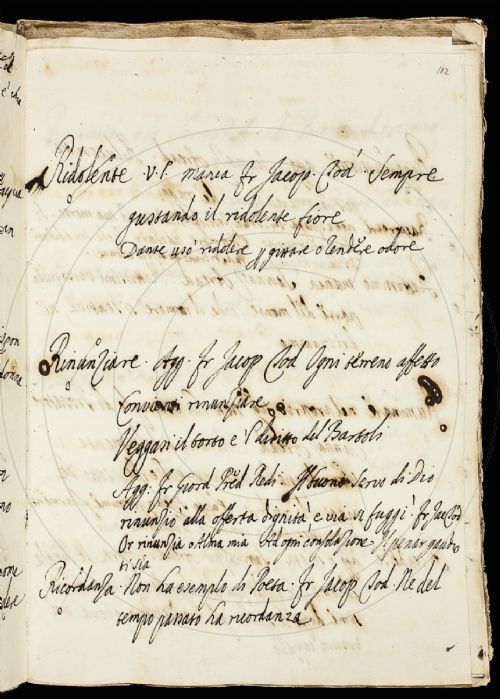 182
Ridolente V. S. manca Fr Jacop. Tod. Sempre
gustando il ridolente fiore
Dante usò ridolere p gittare o rendere odore
Rinunziare. Agg. Fr Jacop Tod Ogni terreno affetto
Convienti rinunziare
Veggasi il torto e 'l diritto del Bartoli
Agg. Fr Giord Pred Redi. Il buono servo di Dio
rinunziò alla offerta dignità e via si fuggì Fr Jac Tod
Or rinunzia o Alma mia Ad ogni consolazione Il penar gaudio
ti sia
Ricordanza. Non ha esemplo di Poeta. Fr Jacop Tod Ne del
tempo passato ha ricordanza